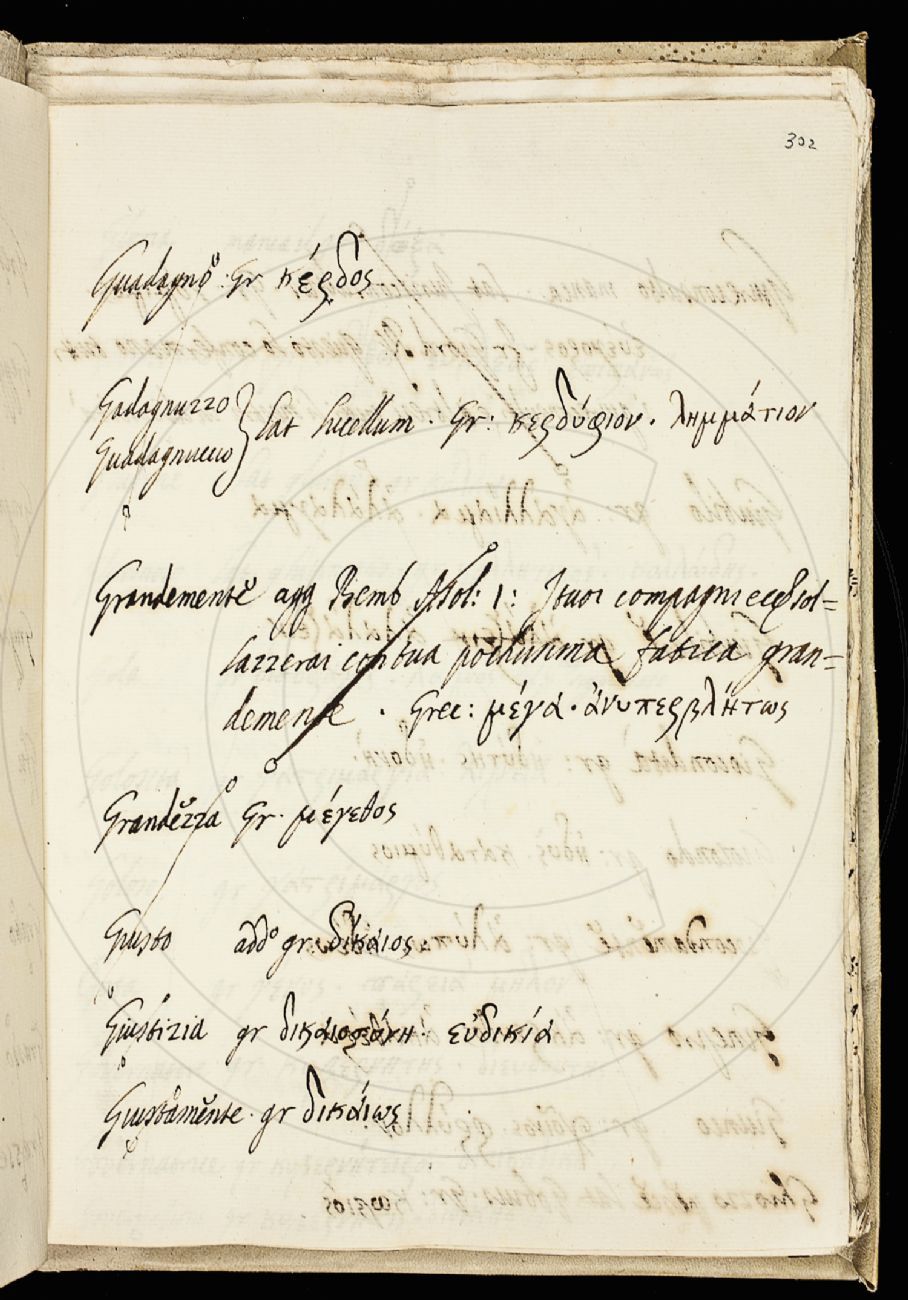 302
Guadagno · Gr κέρδος
Gadagnuzzo
Guadagnuccio
lat lucellum · Gr: κερδύφιον · λημμάτιον
Grandemente agg Bemb Asol: 1: I tuoi compagni sol=
lazzerai con tua pochissima fatica gran=
demente · Grec: μέγα · ἀνυπερβλήτως
Grandezza Gr · μέγεθος
Giusto add° gr · δίκαιος
Giustizia gr δικαιοσύνη · εὐδικία
Giustamente · gr δικαίως